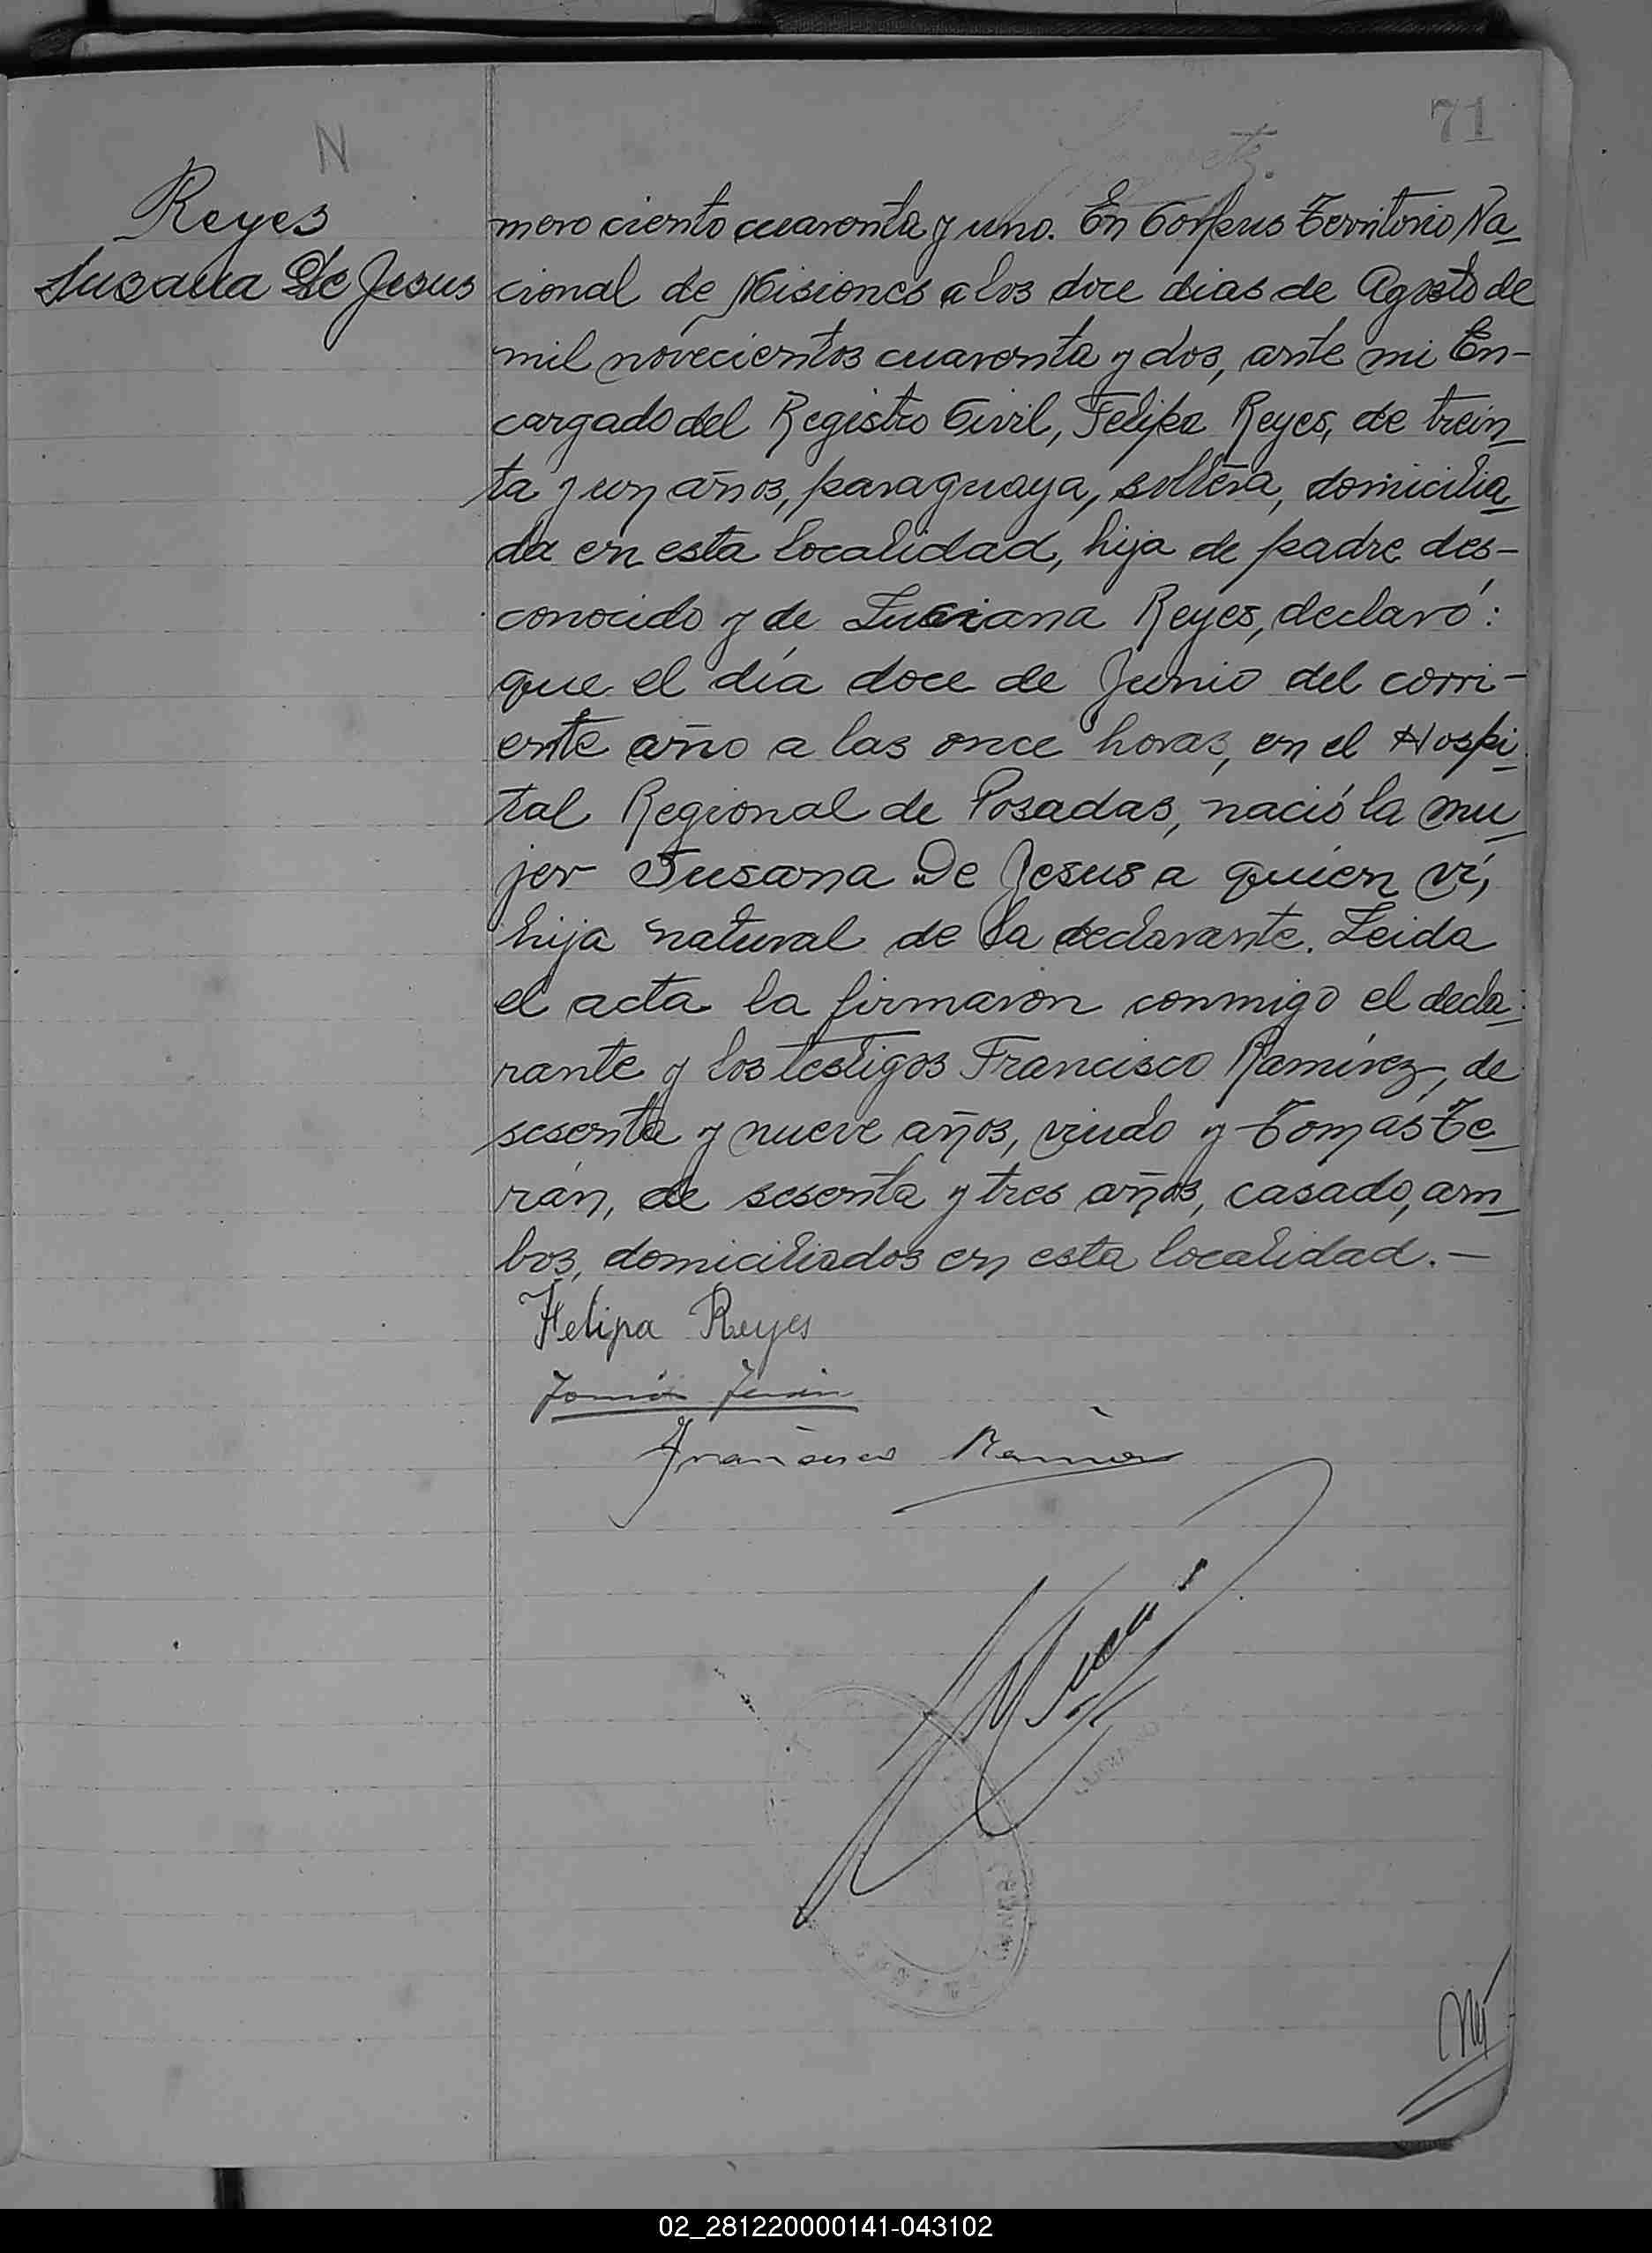 71
N
Reyes
Susana De Jesus
mero ciento cuarenta y uno. En Corpus Territorio Na_
cional de Misiones a los doce dias de Agosto de
mil novecientos cuarenta y dos, ante mi En-
cargado del Registro Civil, Felipa Reyes, de trein_
ta y un años, paraguaya, soltera, domicilia_
da en esta localidad, hija de padre des-
conocido y de Luciana Reyes, declaró:
que el día doce de Junio del corri-
ente año a las once horas, en el Hospi_
tal Regional de Posadas, nació la mu_
jer Susana De Jesus a quien ví,
hija natural de la declarante. Leida
el acta la firmaron conmigo el decla_
rante y los testigos Francisco Ramírez, de
sesenta y nueve años, viudo y Tomás Te_
rán, de sesenta y tres años, casado, am_
bos, domiciliados en esta localidad.-
Felipa Reyes
Tomás Terán
Francisco Ramirez
02_281220000141-043102